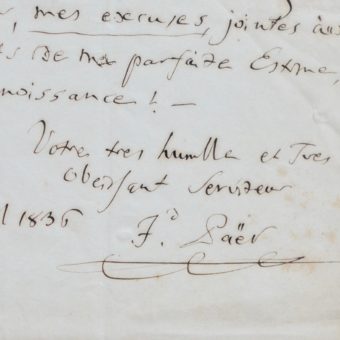 , mes excuses, jointes à
de ma parfaite Estime,
noissance! —
Votre tres humble et Tres
Obeissant Serviteur
l 1836
F.d Paër